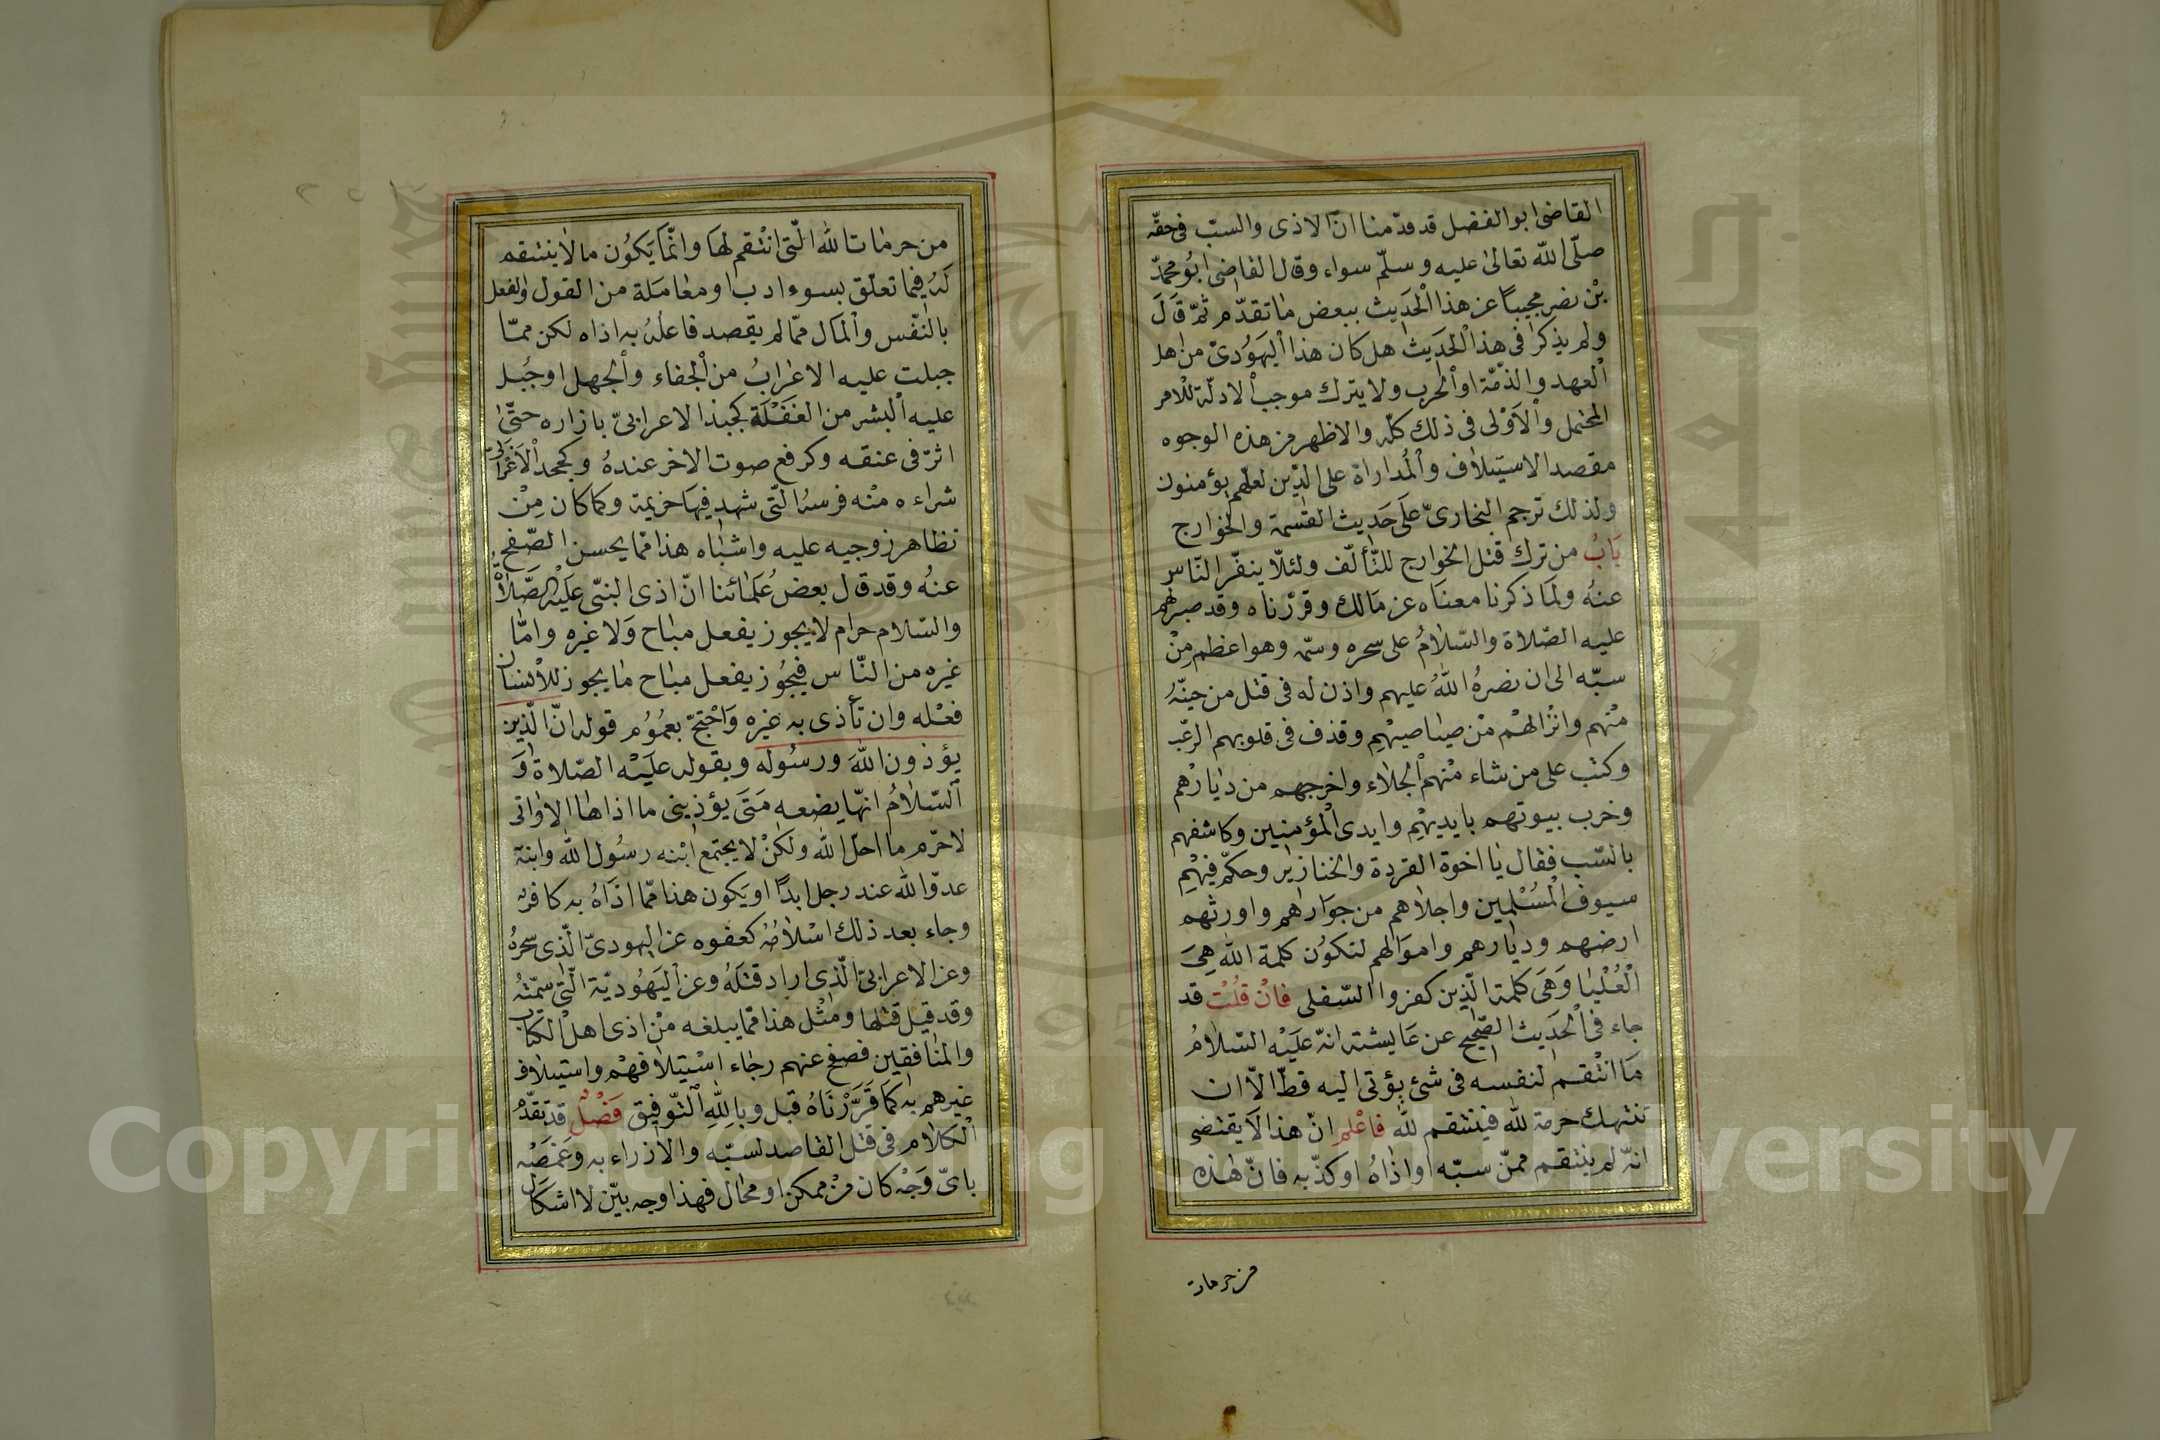 القاضى ابو الفضل قد قدّمنا انّ الاذى والسبّ فى حقّه
صلّى اللّه تعالى عليه وسلّم سواء وقال القاضى ابو محمّد
بن نصر مجيبًا عن هذا الحديث ببعض ما تقدّم ثمّ قال
ولم يذكر فى هذا الحديث هل كان هذا اليهودىّ من اهل
العهد والذّمّة او الحرب ولا يترك موجب الادلّة للامر
المحتمل والاولى فى ذلك كلّه والاظهر من هذه الوجوه
مقصد الاستيلاف والمداراة على الدّين لعلّهم يؤمنون
ولذلك ترجم البخارىّ على حديث القسمة والخوارج
باب من ترك قتل الخوارج للتّألّف ولئلّا ينفّر النّاس
عنه ولما ذكرنا معناه عن مالك وقرّرناه وقد صبر لهم
عليه الصّلاة والسّلام على سحره وسمّه وهو اعظم من
سبّه الى ان نصره اللّه عليهم واذن له فى قتل من حيّنه
منهم وانزالهم من صياصيهم وقذف فى قلوبهم الرّعب
وكتب على من شاء منهم الجلاء واخرجهم من ديارهم
وخرب بيوتهم بايديهم وايدى المؤمنين وكاشفهم
بالسّب فقال يا اخوة القردة والخنازير وحكّم فيهم
سيوف المسلمين واجلاهم من جوارهم واورثهم
ارضهم وديارهم واموالهم لتكون كلمة اللّه هى
العليا وهى كلمة الّذين كفروا السّفلى فان قلت قد
جاء فى الحديث الصّحيح عن عايشته انّه عليه السّلام
ما انتقم لنفسه فى شئ يؤتى اليه قطّ الّا ان
تنتهك حرمة للّه فينتقم للّه فاعلم انّ هذا لا يقتضى
انّه لم ينتقم ممّن سبّه او اذاه او كذّبه فانّ هذه
من حرمات
من حرمات اللّه الّتى انتقم لها وانّما يكون ما لا ينتقم
له فيما تعلّق بسوء ادب او معاملة من القول والفعل
بالنّفس والمال ممّا لم يقصد فاعله به اذاه لكن ممّا
جبلت عليه الاعراب من الجفاء والجهل او جبل
عليه البشر من الغفلة كجبذ الاعرابىّ بازاره حتّى
اثرّ فى عنقه وكرفع صوت الاخر عنده وكجحد الاعرابىّ
شراءه منه فرسه الّتى شهد فيها خزيمة وكما كان من
تظاهر زوجيه عليه واشباه هذا ممّا يحسن الصّفح
عنه وقد قال بعض علمائنا انّ اذى النبىّ عليه الصّلاة
والسّلام حرام لا يجوز بفعل مباح ولا غيره وامّا
غيره من النّاس فيجوز بفعل مباح ما يجوز للانسان
فعله وان تأذى به غيره واحتجّ بعموم قوله انّ الّذين
يؤذون اللّه ورسوله وبقوله عليه الصّلاة و
السّلام انّها بضعه متى يؤذينى ما اذاها الا وانى
لا حرّم ما احلّ اللّه ولكن لا يجتمع ابنه رسول اللّه وابنة
عدوّ اللّه عند رجل ابدًا او يكون هذا ممّا اذاه به كافر
وجاء بعد ذلك اسلامه كعفوه عن اليهودىّ الّذى سحره
وعن الاعرابىّ الّذى اراد قتله وعن اليهوديّة الّتى سمّته
وقد قيل قتلها ومثل هذا ممّا يبلغه من اذى اهل الكتاب
والمنافقين فصفح عنهم رجاء استيلافهم واستيلاف
غيرهم به كما قرّرناه قبل وباللّه التّوفيق فصل قد تقدّم
الكلام فى قتل القاصد لسبّه والازراء به وغمصه
باىّ وجه كان من ممكن او محال فهذا وجه بيّن لا اشكال
Copyright © King Saud University